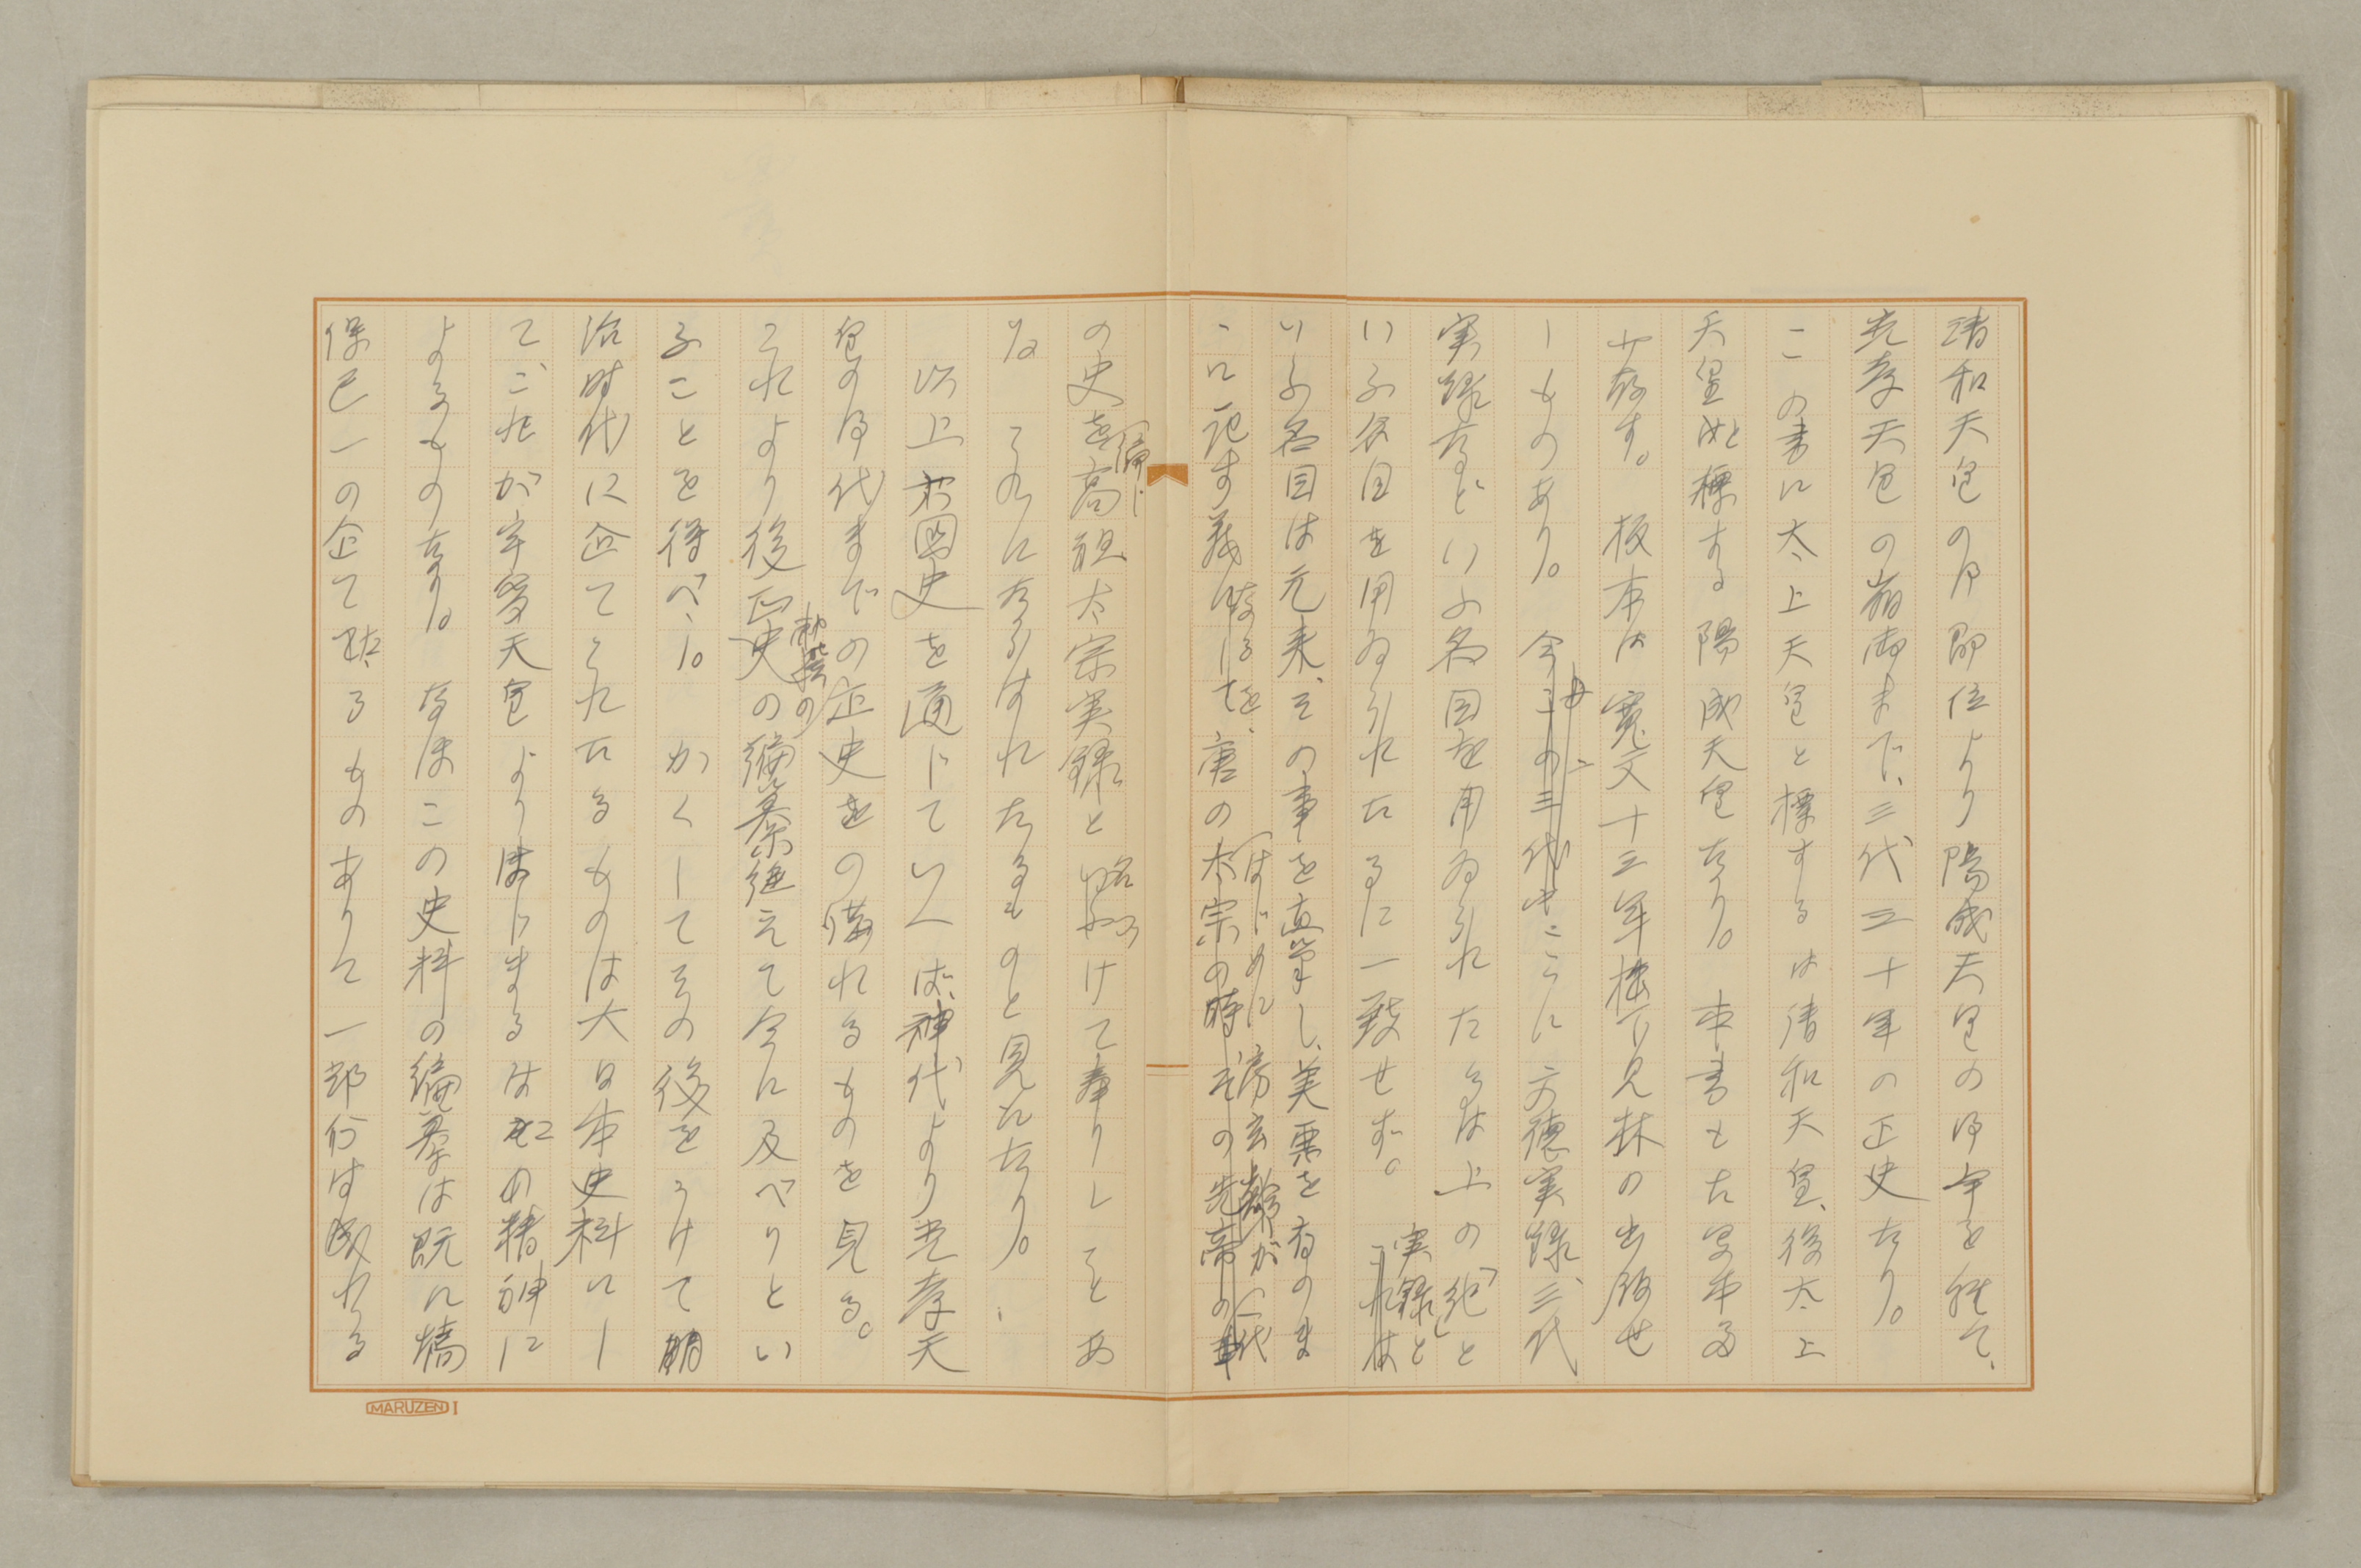 清和天皇の御即位より陽成天皇の御宇を経て、
光孝天皇の崩御まで、三代三十年の正史なり。
この書に太上天皇と標するは清和天皇、後太上
天皇と標する陽成天皇なり。 本書もた写本
存す。 板本は寛文十三年 見林の出版せ
しものあり。 今ここに文徳実録、三代
実録などいふ名目を用ゐられたるは上の「紀」と
いふ名目を用ゐられたるに一致せず。 実録と
いふ名目は元来、その事を直筆し、美悪を有のま
ゝに記す義なるを、唐の太宗の時はじめに房玄齢が一代
の史を編し高祖太宗実録と名づけて奉りしことあ
り。これに
以上 国史を通じていへば、神代より光孝天
皇の御代までの正史をの備れるものを見る。
これより後正史の勅撰の編纂絶えて今に及べりとい
ふことを得べし。 かくしてその後をうけて明
治時代に企てられたるものは大日本史料にし
て、これが宇多天皇よりはじまるはこの精神に
よるものなり。 なほこの史料の編纂は既に塙
保己一の企てたるものありて一部分は成れる
MARUZEN I